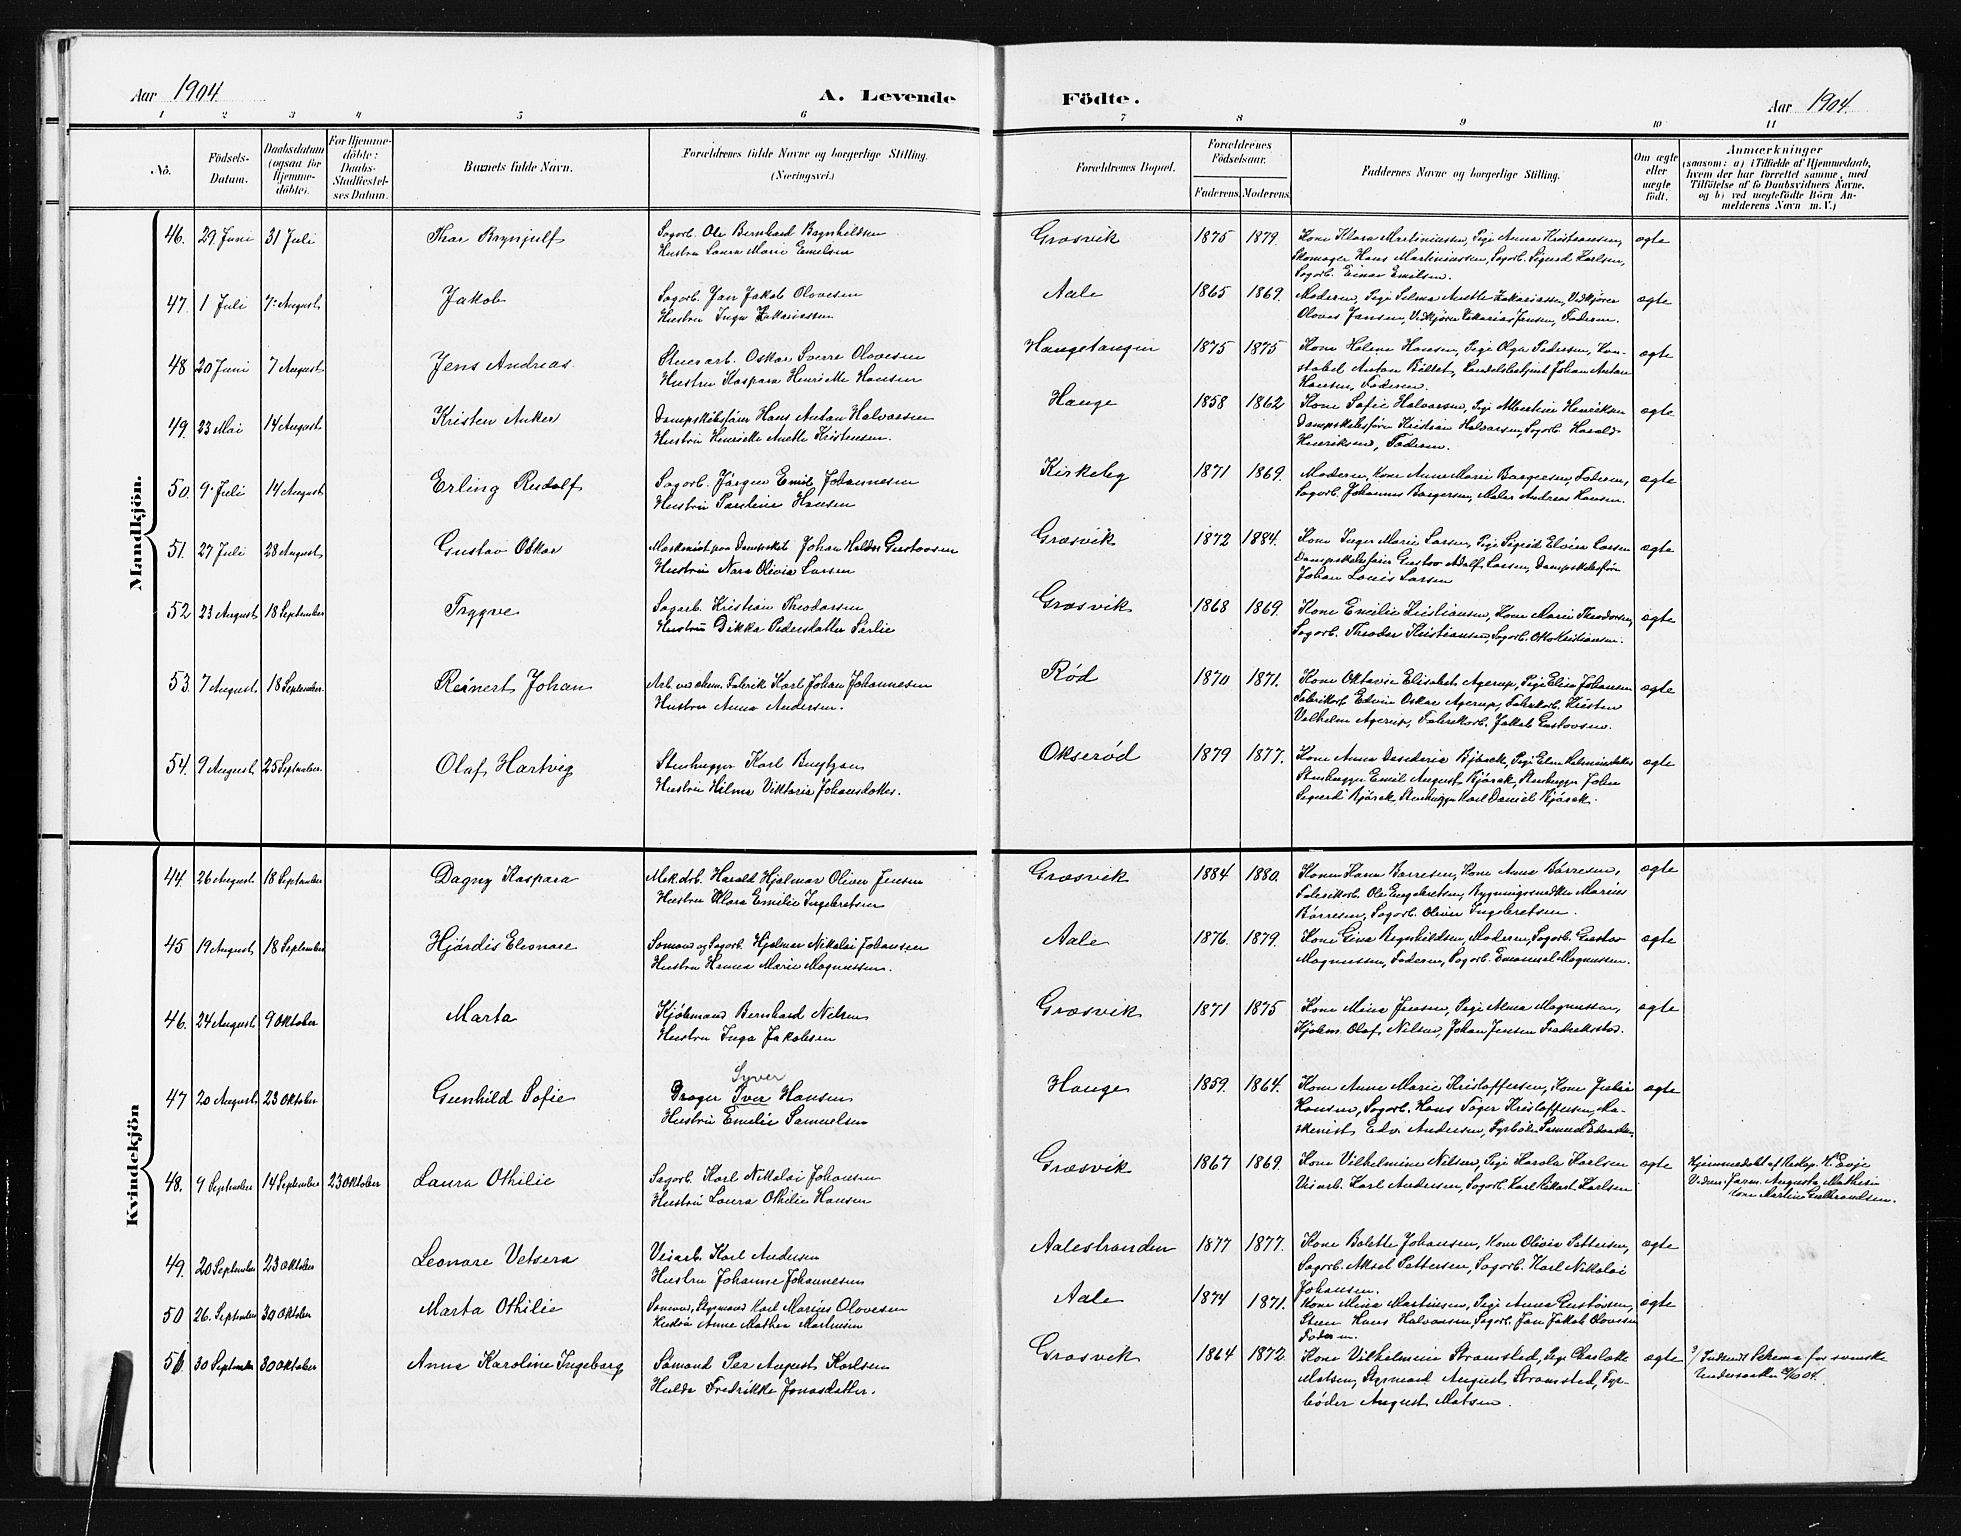 Aar 1904. A. Levende Födte. Aar 1904.
1 2 3 4 5 6 7 8 9 10 11
No.
Födsels-Datum.
Daabsdatum (ogsaa for Hjemmedöbte).
For Hjemmedöbte: Daabs-Stadfæstelses Datum.
Barnets fulde Navn.
Forældrenes fulde Navne og borgerlige Stilling. (Næringsvei.)
Forældrenes Bopæl.
Forældrenes Födselsaar.
Faderens. Moderens.
Faddernes Navne og borgerlige Stilling.
Om ægte eller uægte födt.
Anmærkninger
(saasom: a) i Tilfælde af Hjemmedaab,
hvem der har forrettet samme, med
Tilföielse af to Daabsvidners Navne,
og b) ved uægtefödte Börn An-
melderens Navn m. V.)
Mandkjön.
46. 29 Juni 31 Juli Thor Brynjulf Sagarb. Ole Bernhard Bagnhildsen Græsvik 1875 1879. Kone Klara Martiniussen, Pige Anna Kristiansen, ægte
Hustru Laura Marie Emilsen Skomager Hans Martiniussen, Sagarb. Sigurd Karlsen,
Sagarb. Einar Emilsen.
47. 1 Juli 7. August Jakob Sagarb. Jan Jakob Olovesen Aale 1865 1869. Moderen, Pige Selma Anette Zakariassen, Vedkjører ægte
Hustru Inga Zakariassen Oloves Jansen, Vedkjører Zakarias Jansen, Faderen.
48 20 Juni 7 August Jens Andreas. Stuerarb. Oskar Sverre Olovesen Haugetangen 1875 1875 Kone Helene Hansen, Pige Olga Pedersen, Kon- ægte
Hustru Kaspara Henriette Hansen stabel Anton Bidtet, Handelsbetjent Johan Anton
Hansen, Faderen.
49. 23 Mai 14 August Kristen Anker Dampskibsfører Hans Anton Halvorsen Hauge 1858 1862 Kone Sofie Halvorsen, Pige Albertine Henriksen ægte
Hustru Henriette Anette Kristensen. Dampskibsfører Kristian Halvorsen, Sagarb. Harald
Henriksen, Faderen.
50. 9. Juli 14 August Erling Rudolf Sagarb. Jørgen Emil Johannesen Kirkeby 1871 1869. Moderen, Kone Anne Marie Borgersen, Faderen, ægte
Hustru Pauline Hansen Sagarb. Johannes Borgersen, Maler Andreas Hansen.
51. 27 Juli 28 August Gustav Oskar Maskinist paa Dampskib Johan Halder Gustavsen Græsvik 1872 1884. Kone Inger Marie Larsen, Pige Sigrid Elvira Larsen ægte
Hustru Nora Olivia Larsen Dampskibsfører Gustav Adolf Larsen, Dampskibsfører
Johan Louis Larsen
52 23 August 18 September Trygve Sagarb. Kristian Theodorsen Græsvik 1868 1869 Kone Emilie Kristiansen, Kone Marie Theodorsen, ægte
Hustru Dikka Pedersdatter Sørlie Sagarb. Theodor Kristiansen, Sagarb. Otto Kristiansen.
53. 7 August 18 September Reinert Johan Arb. ved chem. Fabrik Karl Johan Johannesen Rød 1870 1871. Kone Oktavie Elisabet Agerup, Pige Elise Johansen ægte
Hustru Anna Andersen. Fabrikarb. Edvin Oskar Agerup, Fabrikarb. Kristen
Vilhelm Agerup, Fabrikarb. Jakob Gustavsen.
54. 9 August 25 September. Olaf Hartvig Stenhugger Karl Okserød 1879 1877. Kone Anna Desideria Bjørck, Pige ægte
Hustru Hilma Viktoria Johansdatter. Stenhugger Emil August Bjørck, Stenhugger Johan
Sigurd Bjørck, Stenhugger Karl Daniel Bjørck.
Kvindekjön
44. 26 August 18 September Dagny Kaspara Mek.arb. Harald Hjalmar Oliver Jensen Græsvik 1884 1880. Kone Karen Børresen, Kone Anna Børresen, ægte
Hustru Klara Emilie Ingebretsen Fabrikarb. Ole Engebretsen, Bygningssnedker Marius
Børresen, Sagarb. Oliver Ingebretsen.
45 19 August 18 September Hjørdis Eleonore Sømand og Sagarb. Hjalmar Nikolai Johansen Aale 1876. 1879. Kone Gina Regnhildsen, Moderen, Sagarb. Gustav ægte
Hustru Hanna Marie Magnussen. Magnussen, Faderen, Sagarb. Emanuel Magnussen.
46. 24 August 9 Oktober Marta Kjøbmand Bernhard Nilsen Græsvik 1871 1875 Kone Mina Jensen, Pige Alma Magnussen, ægte
Hustru Inga Jakobsen Kjøbm. Olaf Nilsen, Johan Jensen Fredriksstad.
47 20 August 23 Oktober Gunhild Sofie Syver
Drager Iver Hansen Hauge 1859. 1864. Kone Anne Marie Kristoffersen, Kone Julie ægte
Hustru Emilie Samuelsen Hansen, Sagarb. Hans Tøger Kristoffersen, Ma-
skinist Edv. Andersen, Fyrbøder Samuel Edvardsen.
48. 9 September 14 September 23 Oktober Laura Othilie Sagarb. Karl Nikolai Johansen Græsvik 1867 1869. Kone Vilhelmine Nilsen, Pige Harola Karlsen ægte Hjemmedøbt af Reskap. H. Evje
Hustru Laura Othilie Hansen Veiarb. Karl Andersen, Sagarb. Karl Rikart Karlsen Vidner: Jorm. Augusta Mathisen
Kone Martine Gulbrandsen.
49. 20 September 23 Oktober Leonore Vetsera Veiarb. Karl Andersen Aalestranden 1877 1877. Kone Bolette Johansen, Kone Olivia Pettersen, ægte
Hustru Johanne Johannesen Sagarb. Aksel Pettersen, Sagarb. Karl Nikolai
Johansen.
50 26. September 30 Oktober Marta Othilie Sømand, Styrmand Karl Marius Olovesen Aale 1874 1871. Kone Mina Martinsen, Pige Anna Gustavsen, ægte
Hustru Anne Mathea Martinsen Stuer Hans Halvorsen, Sagarb. Jan Jakob Olovesen
Faderen.
51 30 September 30 Oktober Anna Karoline Ingeborg Sømand Per August Karlsen Græsvik 1864 1872. Kone Vilhelmine Strømsted, Pige Charlotte ægte Indsendt Schema for svenske
Hulda Fredrikke Jonasdatter. Matsen, Styrmand August Strømsted, Fyr- Undersaatter
bøder August Matsen.